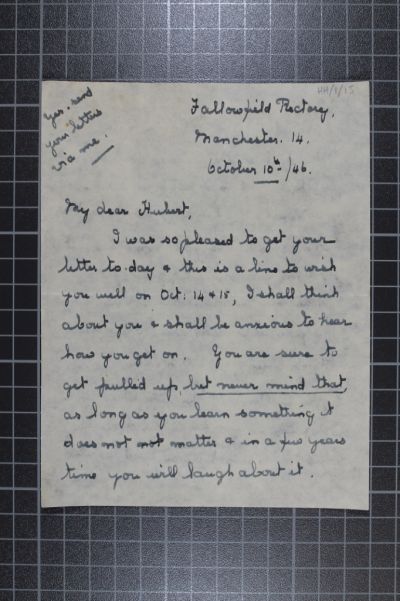 HH/1/15
Yes. send
your letters
via me.
Fallowfield Rectory,
Manchester. 14.
October 10th/46.
My dear Hubert,
I was so pleased to get your
letter to-day & this is a line to wish
you well on Oct: 14 & 15, I shall think
about you & shall be anxious to hear
how you get on. You are sure to
get pulled up, but never mind that,
as long as you learn something it
does not not matter & in a few years
time you will laugh about it.